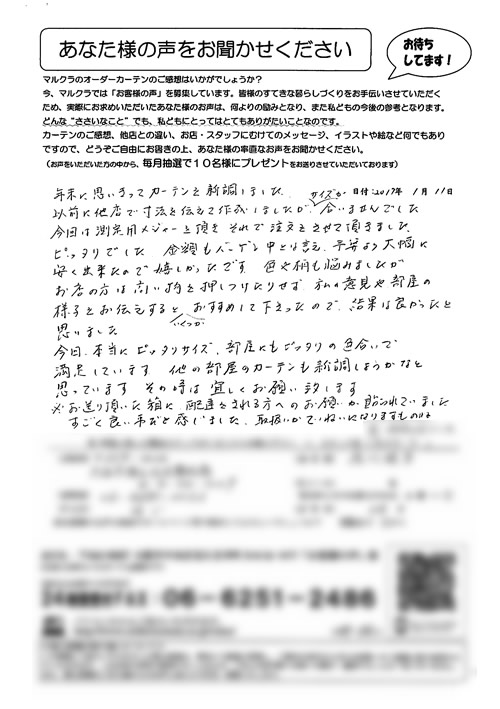 あなた様の声をお聞かせください
お待ち
してます!
マルクラのオーダーカーテンのご感想はいかがでしょうか?
今、マルクラでは「お客様の声」を募集しています。皆様のすてきな暮らしづくりをお手伝いさせていただく
ため、実際にお求めいただいたあなた様のお声は、何よりの励みとなり、また私どもの今後の参考となります。
どんな“ささいなこと”でも、私どもにとってはとてもありがたいことなのです。
カーテンのご感想、他店との違い、お店・スタッフにむけてのメッセージ、イラストや絵など何でもあり
ですので、どうぞご自由にお書きの上、あなた様の率直なお声をお聞かせください。
(お声をいただいた方の中から、毎月抽選で10名様にプレゼントをお送りさせていただいております)
日付:2017年 1月11日
年末に思いきってカーテンを新調しました。
以前に他店で寸法を伝えて作成しましたが、サイズが合いませんでした
今回は測定用メジャーを頂き それで注文をさせて頂きました
ピッタリでした 金額もバーゲン中とは言え、予算より大幅に
安く出来たので嬉しかったです 色や柄も悩みましたが
お店の方は高い物を押しつけたりせず 私の意見や部屋の
様子をお伝えすると いくつか おすすめして下さったので、結果は良かったと
思いました
今回、本当にピッタリサイズ、部屋にもピッタリの色合いで
満足しています 他の部屋のカーテンも新調しようかなと
思っています その時は宜しくお願い致します
※お送り頂いた箱に、配達をされる方へのお願いが貼られていました
すごく良い事だと感じました、取扱いがていねいになりますものね
06-6251-2486